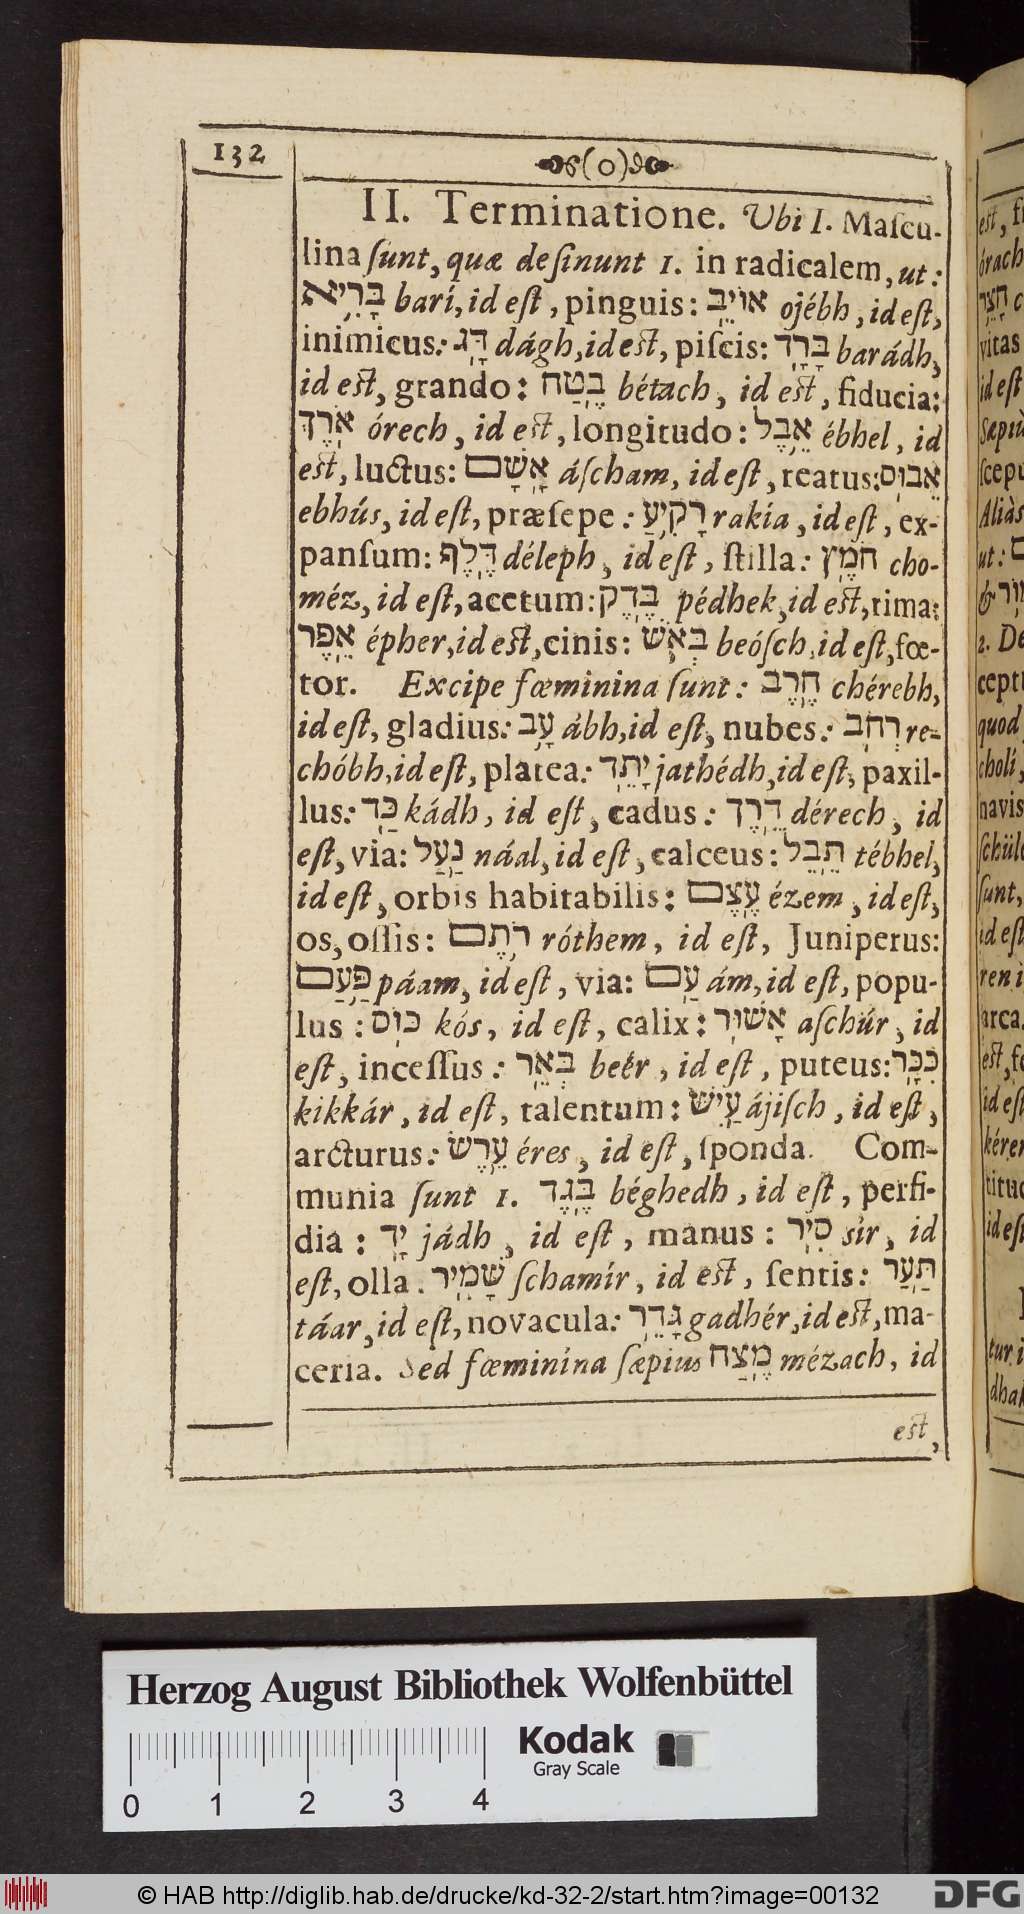 132
(o)
II. Terminatione. Ubi I. Maſcu-
lina ſunt, quæ deſinunt 1. in radicalem, ut:
בָּרִיא barí, id eſt, pinguis: אוֹיֵב ojébh, id eſt,
inimicus: דָּג dágh, id est, piſcis: בָּרָד barádh,
id est, grando: בֶּטַח bétach, id est, fiducia:
אֹרֶךְ órech, id est, longitudo: אֵבֶל ébhel, id
est, luctus: אָשָׁם áſcham, id eſt, reatus: אֵבוּס
ebhús, id eſt, præſepe: רָקִיעַ rakía, id eſt, ex-
panſum: דֶּלֶף déleph, id eſt, ſtilla: חֹמֶץ cho-
méz, id eſt, acetum: בֶּדֶק pédhek, id est, rima:
אֵפֶר épher, id est, cinis: בְּאֹשׁ beóſch, id eſt, fœ-
tor. Excipe fœminina ſunt: חֶרֶב chérebh,
id eſt, gladius: עָב ábh, id eſt, nubes: רְחֹב re-
chóbh, id eſt, platea: יָתֵד jathédh, id eſt, paxil-
lus: כַּד kádh, id eſt, cadus: דֶּרֶך dérech, id
eſt, via: נַעַל náal, id eſt, calceus: תֵּבֵל tébhel,
id eſt, orbis habitabilis: עֶצֶם ézem, id eſt,
os, oſſis: רֹתֶם róthem, id eſt, Juniperus:
פַּעַם páam, id eſt, via: עַם ám, id eſt, popu-
lus: כּוֹס kós, id eſt, calix: אָשׁוּר aſchúr, id
eſt, inceſſus: בְּאֵר beér, id eſt, puteus: כִּכָּר
kikkár, id eſt, talentum: עַיִשׁ ájiſch, id eſt,
arcturus: עֶרֶשׂ éres, id eſt, ſponda. Com-
munia ſunt 1. בֶּגֶד béghedh, id eſt, perfi-
dia: יָד jádh, id eſt, manus: סִיר sír, id
eſt, olla. שָׁמִיר ſchamír, id est, ſentis: תַּעַר
táar, id eſt, novacula: גָּדֵר gadhér, id est, ma-
ceria. Sed fœminína ſæpius מֶצַח mézach, id
est,
est, ſ
órach
חָצֵר c
vitas
id eſt
Sæpiù
ſcepu
Aliàs
ut:
2. De
cepti
quod
choli,
navis
ſchül
ſunt,
id eſt
ren i
arca.
est, fe
id eſt
kéren
titud
id eſ
tur i
dhak
Herzog August Bibliothek Wolfenbüttel
Kodak
Gray Scale
0 1 2 3 4
© HAB http://diglib.hab.de/drucke/kd-32-2/start.htm?image=00132
DFG